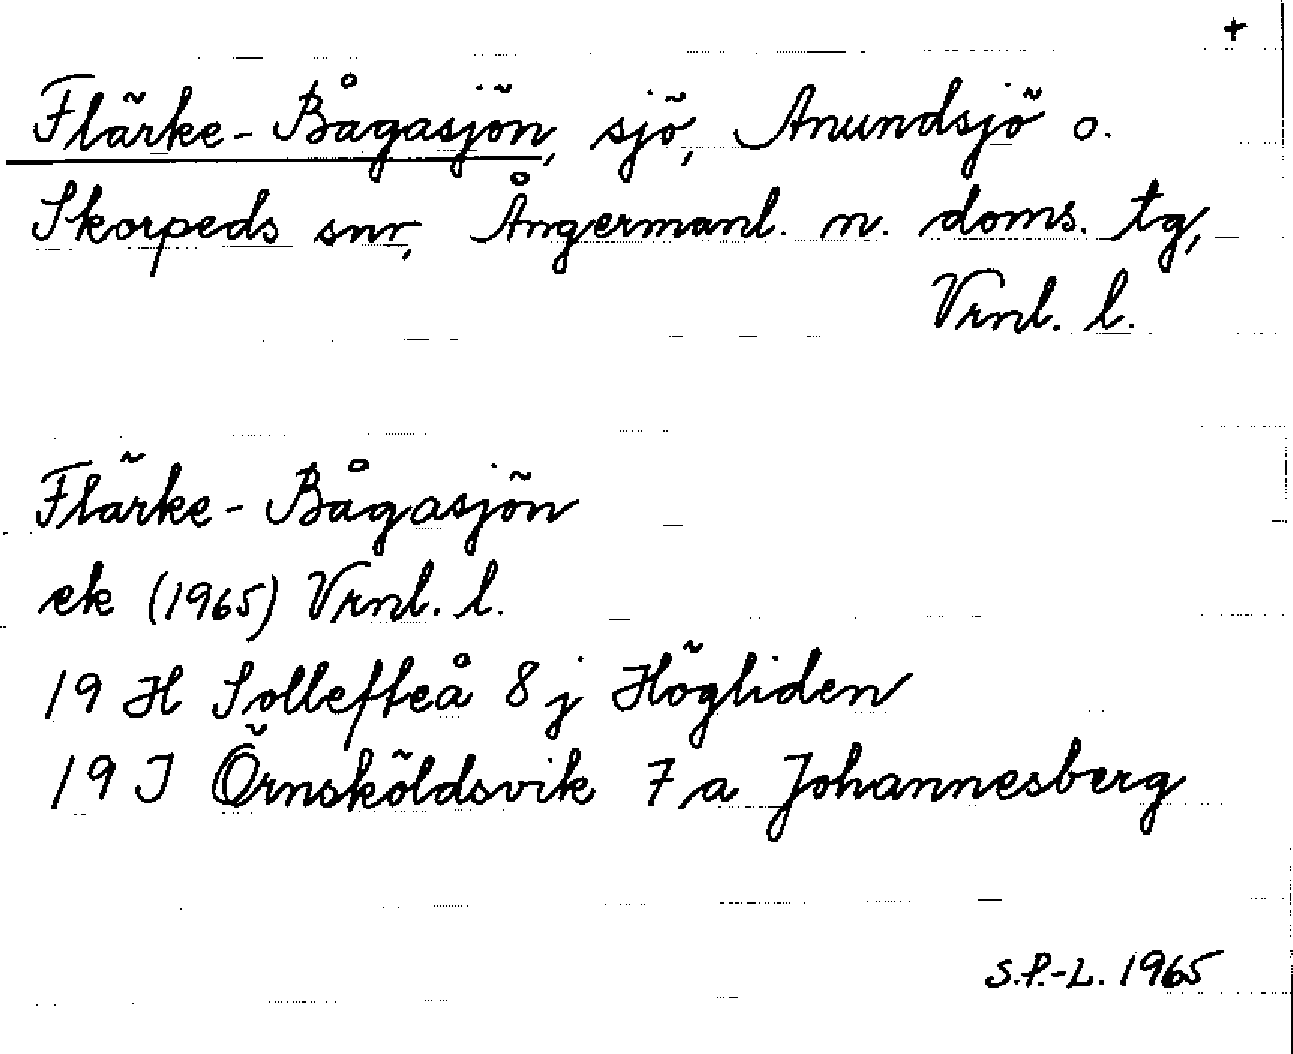 +
Flärke-Bågasjön, sjö, Anundsjö o.
Skorpeds snr, Ångermanl. n. doms. tg,
Vrnl. l.
Flärke-Bågasjön
ek (1965) Vrnl. l.
19 H Sollefteå 8 j Högliden
19 I Örnsköldsvik 7 a Johannesberg
S.P.-L. 1965